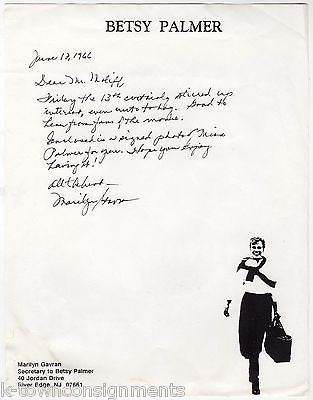 BETSY PALMER
June 13, 1966
Dear Mr. Moliff,
Friday the 13th certainly stirred up
interest, even unto today. Good to
hear from fans of the movie.
Enclosed is a signed photo of Miss
Palmer for you. Hope you enjoy
having it!
All the best —
Marilyn Gavran
Marilyn Gavran
Secretary to Betsy Palmer
40 Jordan Drive
River Edge, NJ 07661
k-townconsignments